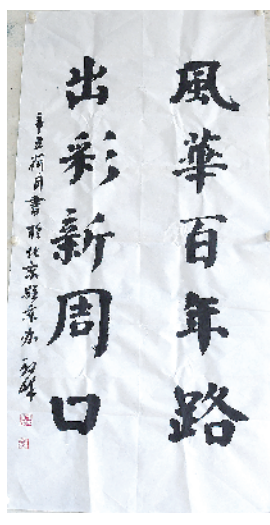 風華百年路
出彩新周口
辛丑荷月書於北京